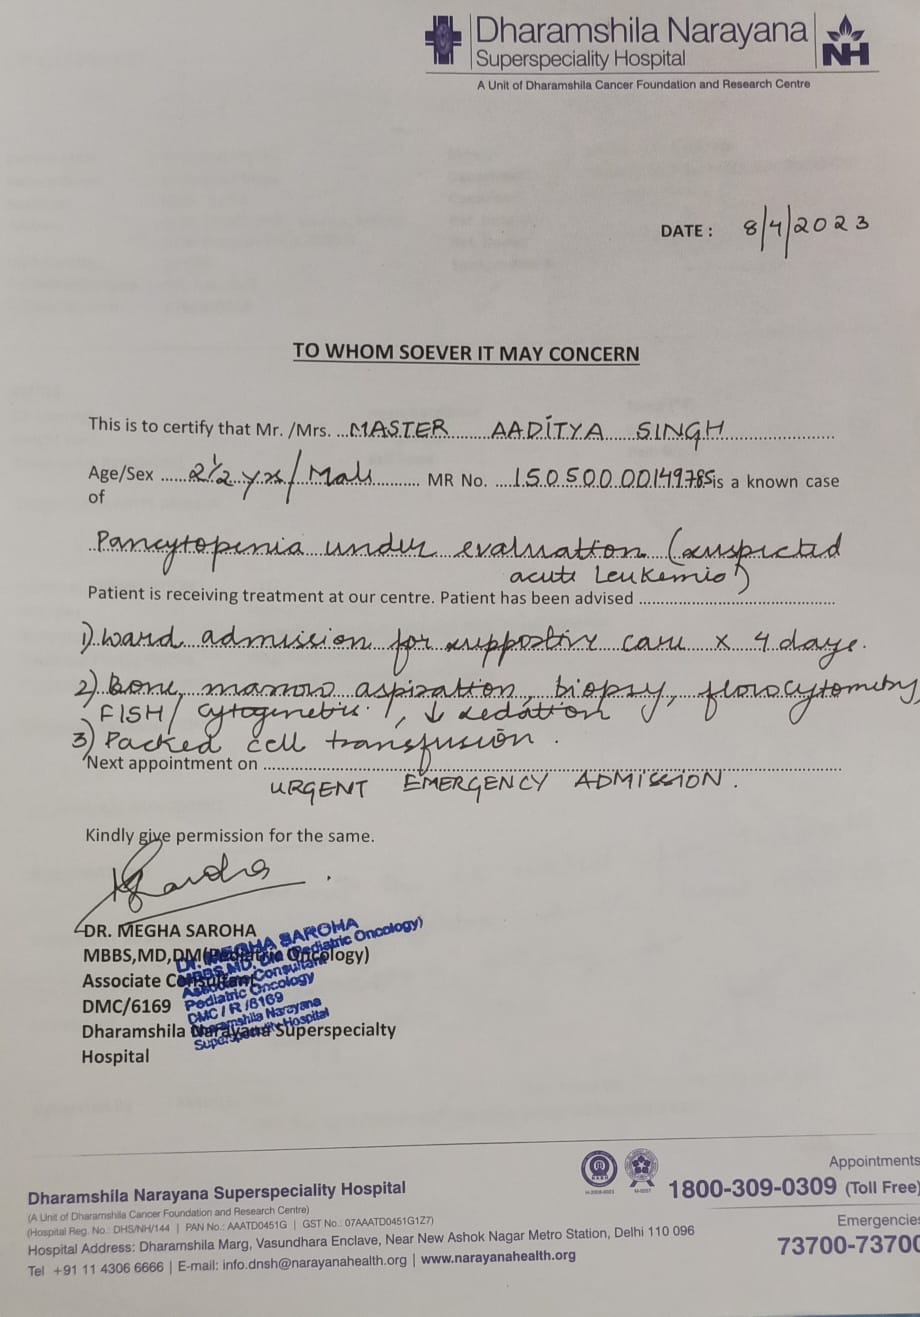 Dharamshila Narayana
Superspeciality Hospital
NH
A Unit of Dharamshila Cancer Foundation and Research Centre
DATE : 8/4/2023
TO WHOM SOEVER IT MAY CONCERN
This is to certify that Mr. /Mrs. MASTER AADITYA SINGH
Age/Sex 2½ yrs/Male MR No. 15050000149785 is a known case
of
Pancytopenia under evaluation (suspected
acute Leukemia)
Patient is receiving treatment at our centre. Patient has been advised
1) ward admission for supportive care x 4 days.
2) Bone marrow aspiration, biopsy, flowcytometry,
FISH/ cytogenetic, ↓ sedation
3) Packed cell transfusion.
Next appointment on
URGENT EMERGENCY ADMISSION.
Kindly give permission for the same.
DR. MEGHA SAROHA
MBBS,MD,DM(Pediatric Oncology)
Associate Consultant
DMC/6169
Dharamshila Narayana Superspecialty
Hospital
Dr. MEGHA SAROHA
MBBS, MD, DM (Pediatric Oncology)
Associate Consultant
Pediatric Oncology
DMC / R /6169
Dharamshila Narayana
Superspeciality Hospital
Appointments
1800-309-0309 (Toll Free)
Emergencie
73700-7370
Dharamshila Narayana Superspeciality Hospital
(A Unit of Dharamshila Cancer Foundation and Research Centre)
(Hospital Reg. No.: DHS/NH/144 | PAN No.: AAATD0451G | GST No.: 07AAATD0451G1Z7)
Hospital Address: Dharamshila Marg, Vasundhara Enclave, Near New Ashok Nagar Metro Station, Delhi 110 096
Tel +91 11 4306 6666 | E-mail: info.dnsh@narayanahealth.org | www.narayanahealth.org